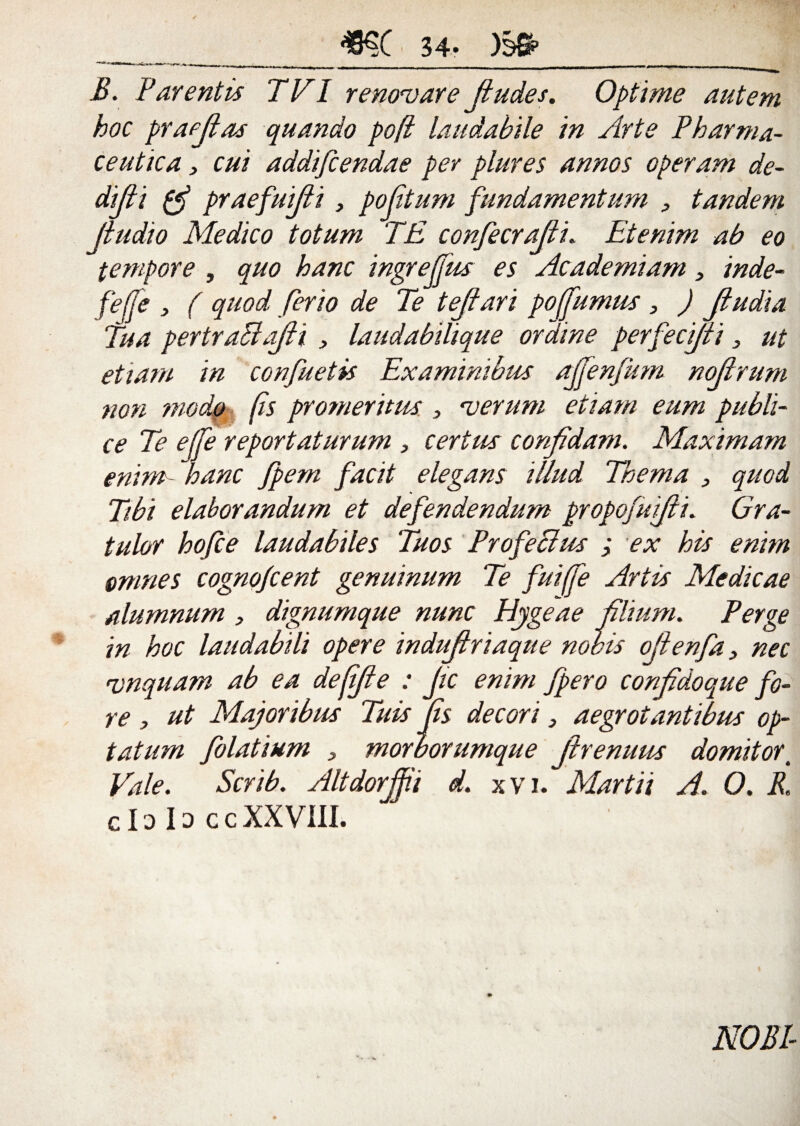 34.
B. Parentis TVI renovare ſtudes. Optime autem
hoc praeſtas quando poſt laudabile in Arte Pharma-
ceutica, cui addiſcendae per plures annos operam de-
diſti & praefuiſti, poſitum fundamentum, tandem
ſtudio Medico totum TE conſecraſti. Etenim ab eo
tempore, quo hanc ingreſſus es Academiam, inde-
feſſe, ( quod ſerio de Te teſtari poſſumus, ) ſtudia
Tua pertractaſti, laudabilique ordine perfeciſti, ut
etiam in conſuetis Examinibus aſſenſum noſtrum
non modo ſis promeritus, verum etiam eum publi-
ce Te eſſe reportaturum, certus confidam. Maximam
enim hanc ſpem facit elegans illud Thema, quod
Tibi elaborandum et defendendum propoſuiſti. Gra-
tulor hoſce laudabiles Tuos Profectus; ex his enim
omnes cognoſcent genuinum Te fuiſſe Artis Medicae
alumnum, dignumque nunc Hygeae filium. Perge
in hoc laudabili opere induſtriaque nobis oſtenſa, nec
vnquam ab ea deſiſte: ſic enim ſpero confidoque fo-
re, ut Majoribus Tuis ſis decori, aegrotantibus op-
tatum ſolatium, morborumque ſtrenuus domitor.
Vale. Scrib. Altdorffii d. XVI. Martii A. O. R.
cIↃ IↃ ccXXVIII.
NOBI-